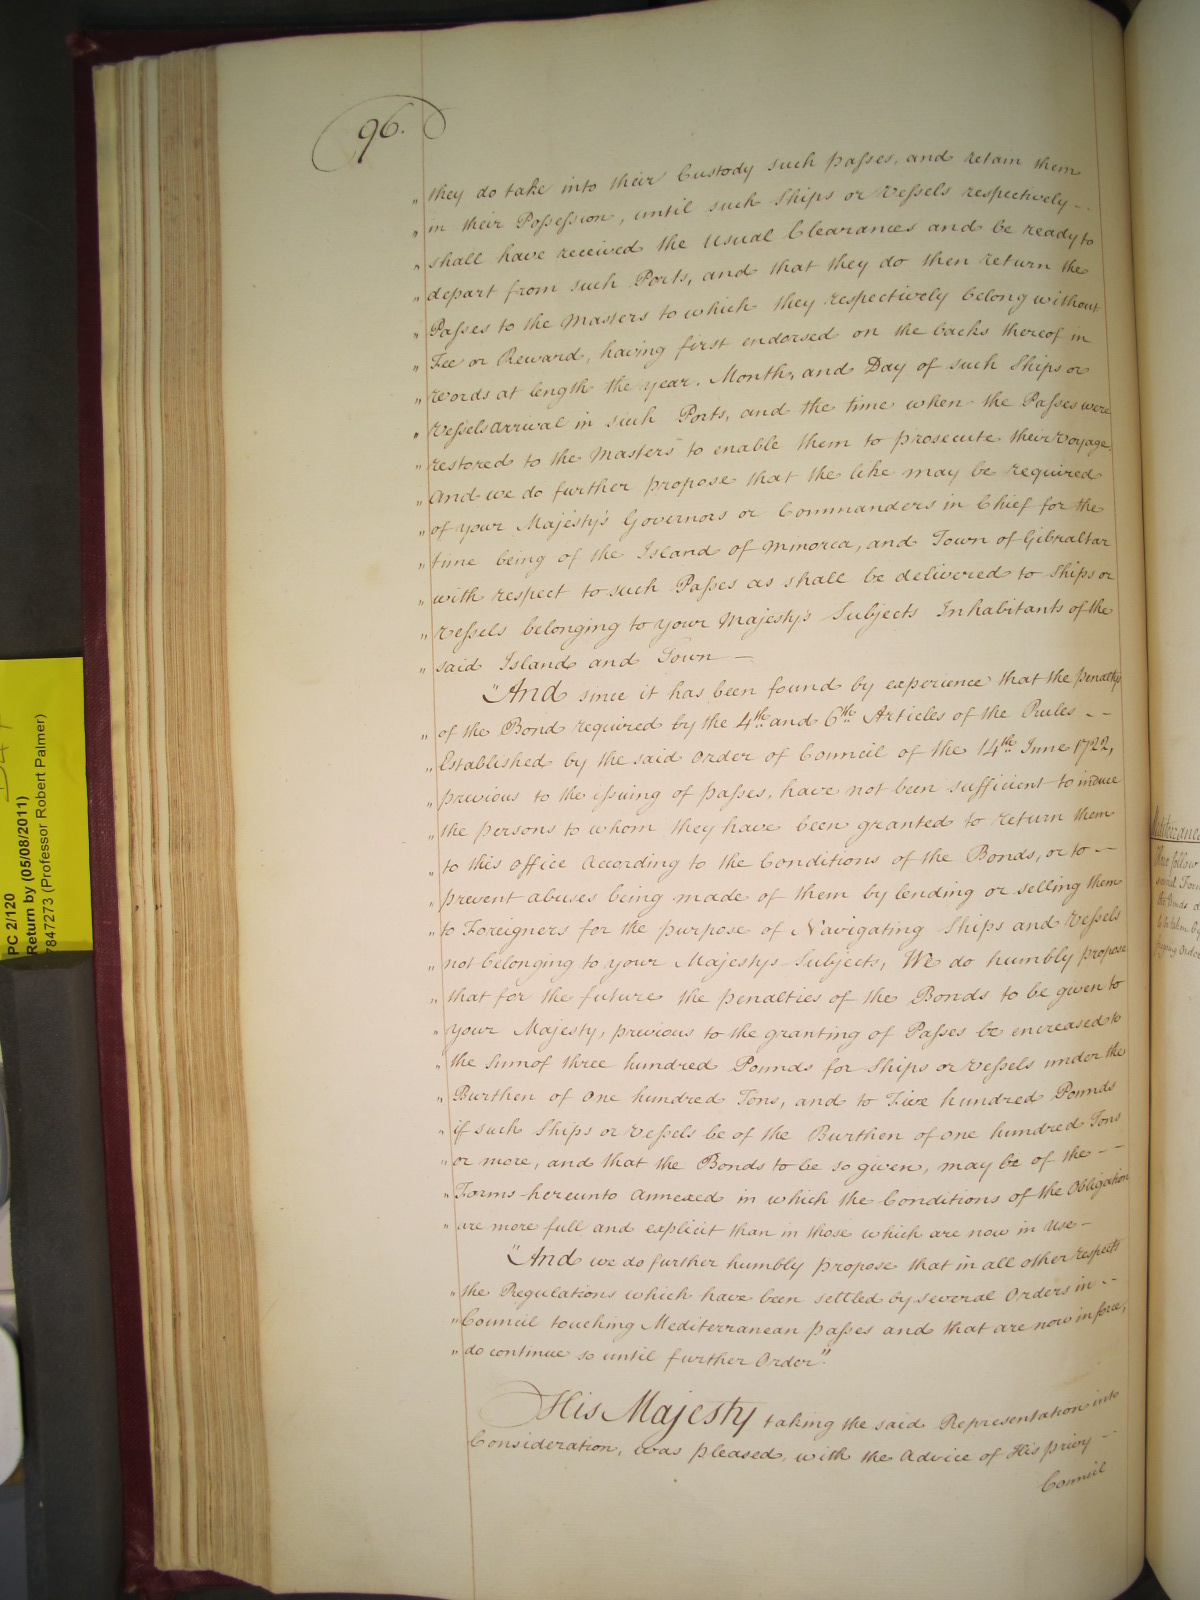 96.
" they do take into their Custody such passes, and retain them
" in their Possession, until such Ships or Vessels respectively -
" shall have received the Usual Clearances and be ready to
" depart from such Ports, and that they do then return the
" Passes to the Masters to which they respectively belong without
" Fee or Reward, having first endorsed on the backs thereof in
" words at length the year, Month, and Day of such Ships or
" Vessels arrival in such Ports, and the time when the Passes were
" restored to the Masters to enable them to prosecute their Voyage.
" And we do further propose that the like may be required
" of your Majesty's Governors or Commanders in Chief for the
" time being of the Island of Minorca, and Town of Gibraltar
" with respect to such Passes as shall be delivered to Ships or
" Vessels belonging to your Majesty's Subjects Inhabitants of the
" said Island and Town -
" And since it has been found by experience that the penalty
" of the Bond required by the 4th and 6th Articles of the Rules - -
" Established by the said Order of Council of the 14th June 1722,
" previous to the issuing of passes, have not been sufficient to induce
" the persons to whom they have been granted to return them
" to this office According to the Conditions of the Bonds, or to -
" prevent abuses being made of them by lending or selling them
" to Foreigners for the purpose of Navigating Ships and Vessels
" not belonging to your Majestys Subjects, We do humbly propose
" that for the future the penalties of the Bonds to be given to
" your Majesty, previous to the granting of Passes be encreased to
" the Sum of three hundred Pounds for Ships or Vessels under the
" Burthen of One hundred Tons, and to Five hundred Pounds
" if such Ships or Vessels be of the Burthen of one hundred Tons
" or more, and that the Bonds to be so given, may be of the - -
" Forms hereunto Annexed in which the Conditions of the Obligation
" are more full and explicit than in those which are now in Use -
" And we do further humbly propose that in all other respects
" the Regulations which have been settled by several Orders in - -
" Council touching Mediterranean passes and that are now in force,
" do continue so until further Order"
His Majesty taking the said Representation into
Consideration, was pleased, with the Advice of His privy -
Council
PC 2/120
Return by (05/08/2011)
7847273 (Professor Robert Palmer)